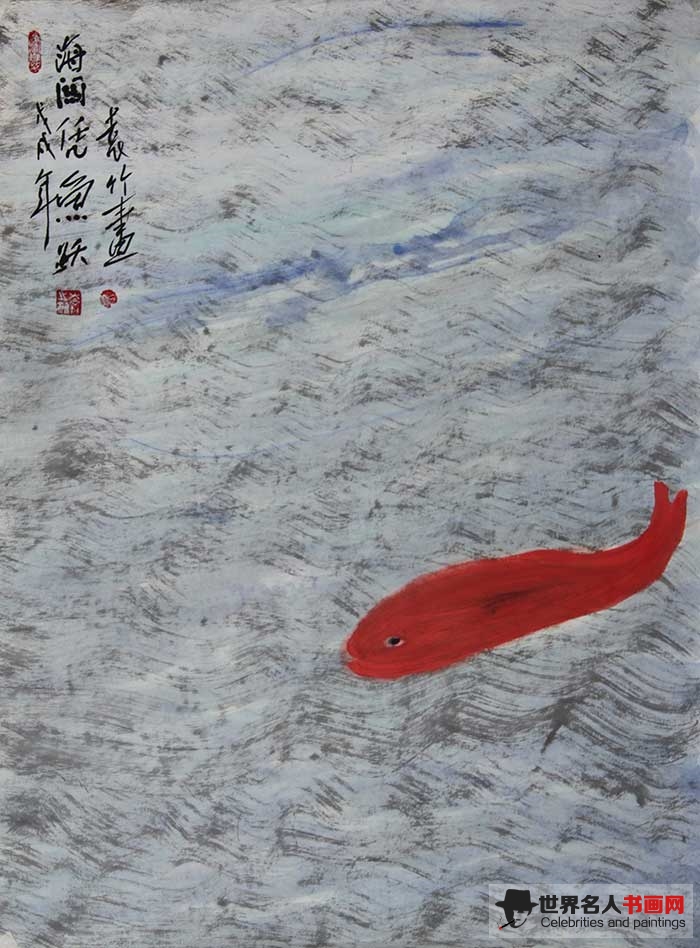 海阔凭魚跃
戊戌年
袁竹畫
世界名人书画网
Celebrities and paintings